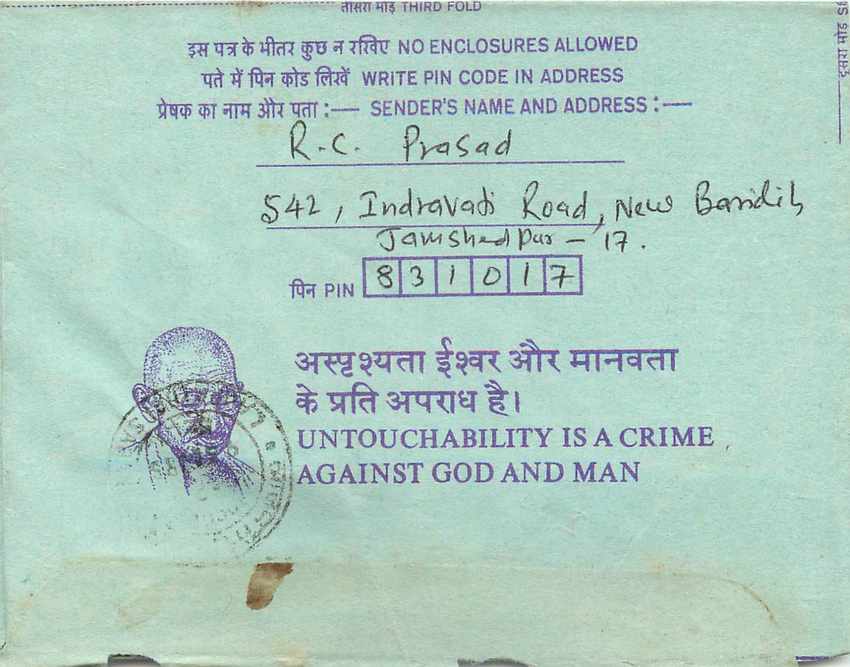 तीसरा मोड़ THIRD FOLD
दूसरा मोड़
इस पत्र के भीतर कुछ न रखिए NO ENCLOSURES ALLOWED
पते में पिन कोड लिखें WRITE PIN CODE IN ADDRESS
प्रेषक का नाम और पता :— SENDER'S NAME AND ADDRESS :—
R.C. Prasad
542, Indravati Road, New Baridih
Jamshedpur - 17.
पिन PIN 831017
अस्पृश्यता ईश्वर और मानवता
के प्रति अपराध है।
UNTOUCHABILITY IS A CRIME
AGAINST GOD AND MAN